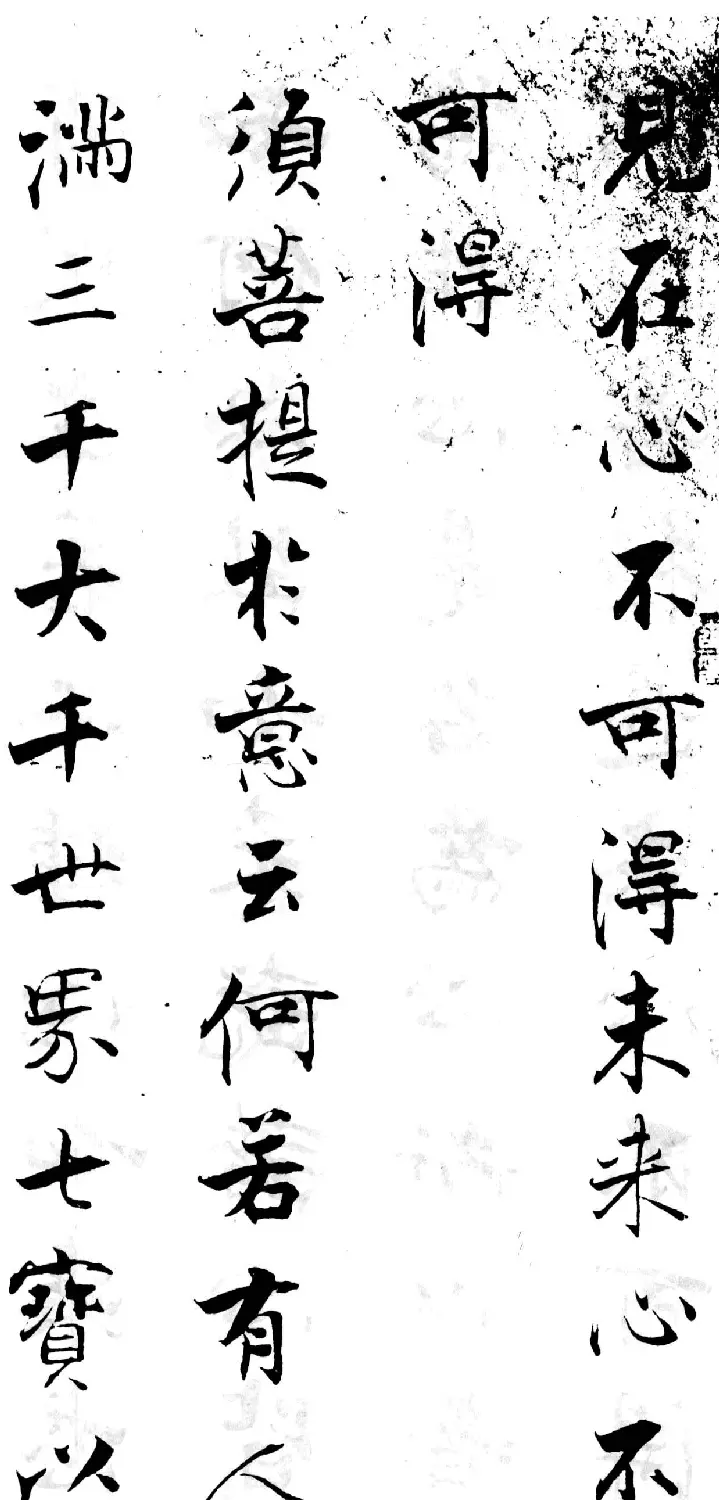 見在心不可得未来心不
可得
須菩提於意云何若有人
満三千大千世界七寳以